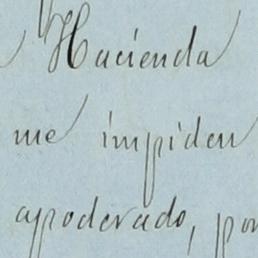 Hacienda
me impiden
apoderado, por